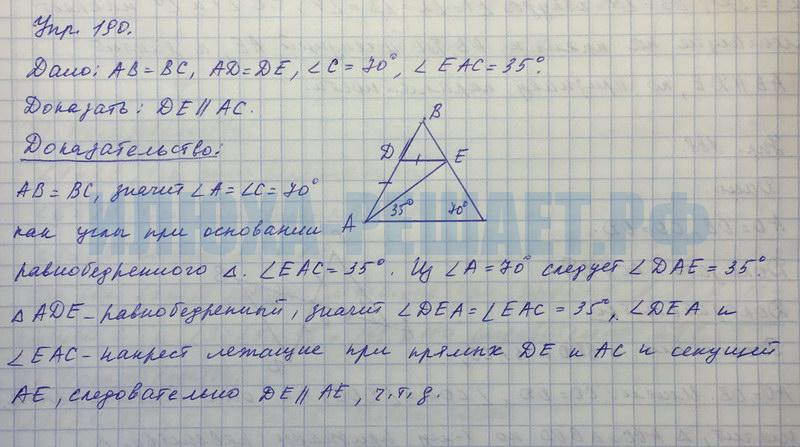 Упр. 190.
Дано: AB = BC, AD = DE, ∠C = 70°, ∠EAC = 35°.
Доказать: DE ∥ AC.
Доказательство:
AB = BC, значит ∠A = ∠C = 70°
как углы при основании
равнобедренного △. ∠EAC = 35°. Из ∠A = 70° следует ∠DAE = 35°.
△ADE – равнобедренный, значит ∠DEA = ∠EAC = 35°, ∠DEA и
∠EAC – накрест лежащие при прямых DE и AC и секущей
AE, следовательно DE ∥ AE, ч.т.д.
B
D
E
A
35°
70°
ИПОХА-РЕШАЕТ.РФ